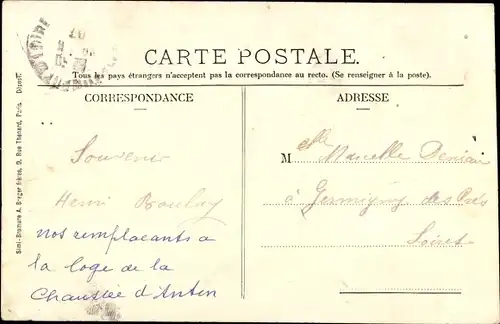 CARTE POSTALE.
Tous les pays étrangers n'acceptent pas la correspondance au recto. (Se renseigner à la poste).
CORRESPONDANCE
ADRESSE
Souvenir
Henri Boulay
nos remplacants a
la loge de la
Chaussée d'Antin
Melle Marcelle
à Germigny des Prés
Loiret
Simi-Bromure A. Breger frères, 9, Rue Thénard, Paris. Déposé.